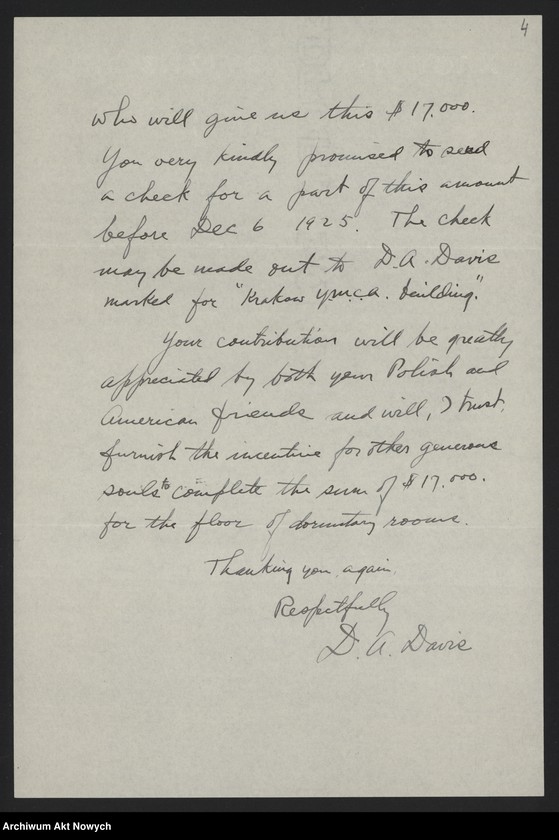 4
who will give us this $17,000.
You very kindly promised to send
a check for a part of this amount
before Dec 6 1925. The check
may be made out to D.A. Davis
marked for "Krakow Y.M.C.A. building."
Your contribution will be greatly
appreciated by both your Polish and
American friends and will, I trust,
furnish the incentive for other generous
souls to complete the sum of $17,000.
for the floor of dormitory rooms.
Thanking you again.
Respectfully
D. A. Davis
Archiwum Akt Nowych